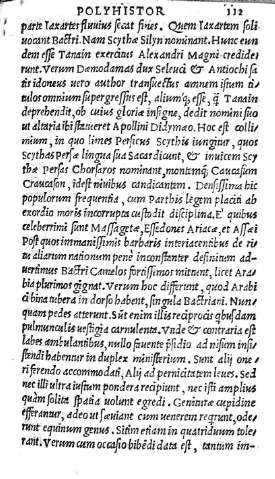 POLYHISTOR 112
parte Iaxartes fluuius secat fines. Quem Iaxartem soli
uocant Bactri. Nam Scythæ Silyn nominant. Hunc eun
dem esse Tanain exercitus Alexandri Magni credide
runt. Verum Demodamas dux Seleuci & Antiochi sa
tis idoneus uero author transuectus amnem istum ti
tulos omnium supergressus est, alium, esse, Tanain
deprehendit, ob cuius gloriæ insigne, dedit nomini suo
ut altaria ibi statueret Apollini Didymæo. Hoc est collim
mium, in quo limes Persicus Scythis iungitur, quos
Scythas Persæ lingua sua Sacas dicunt, & inuicem Scy
thæ Persas Chorsaros nominant, montem Caucasum
Craucason, idest niuibus candicantem. Densissima hic
populorum frequentia, cum Parthis legem placiti ab
exordio moris incorrupta custodit disciplina. E' quibus
celeberrimi sunt Massagetæ, Essedones Ariacæ, et Assæi
Post quos immanissimis barbaris interiacentibus de ri
tu aliarum nationum penè inconstanter definitum ad
uertimus Bactri Camelos fortissimos mittunt, licet Ara
bia plurimos gignat. Verum hoc differunt, quod Arabi
ci bina tubera in dorso habent, singula Bactriani. Nun
quam pedes atterunt. Sūt enim illis reciprocis qbusdam
pulmunculis uestigia carnulenta. Vnde & contraria est
labes ambulantibus, nullo fauente psidio ad nisum insi
stendi habentur in duplex ministerium. Sunt alij one
ri ferendo accommodati, Alij ad pernicitatem leues. Sed
nec illi ultra iustum pondera recipiunt, nec isti amplius
quàm solita spatia uolunt egredi. Genituræ cupidine
efferantur, adeo ut sæuiant cum uenerem requrunt, ode
runt equinum genus. Sitim etiam in quatriduum tole
rant. Verum cum occasio bibēdi data est, tantum im